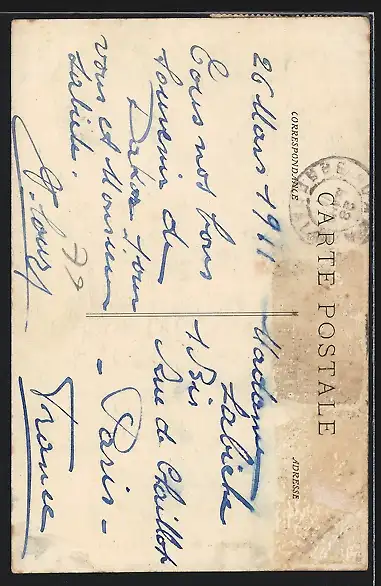 CARTE POSTALE
CORRESPONDANCE
ADRESSE
26 Mars 1911
Tous nos bons
souvenir de
Dakar pour
vous et Monsieur
Labiche.
77
Madame
Labiche
1 Bis
Rue de Chaillot
- Paris -
France